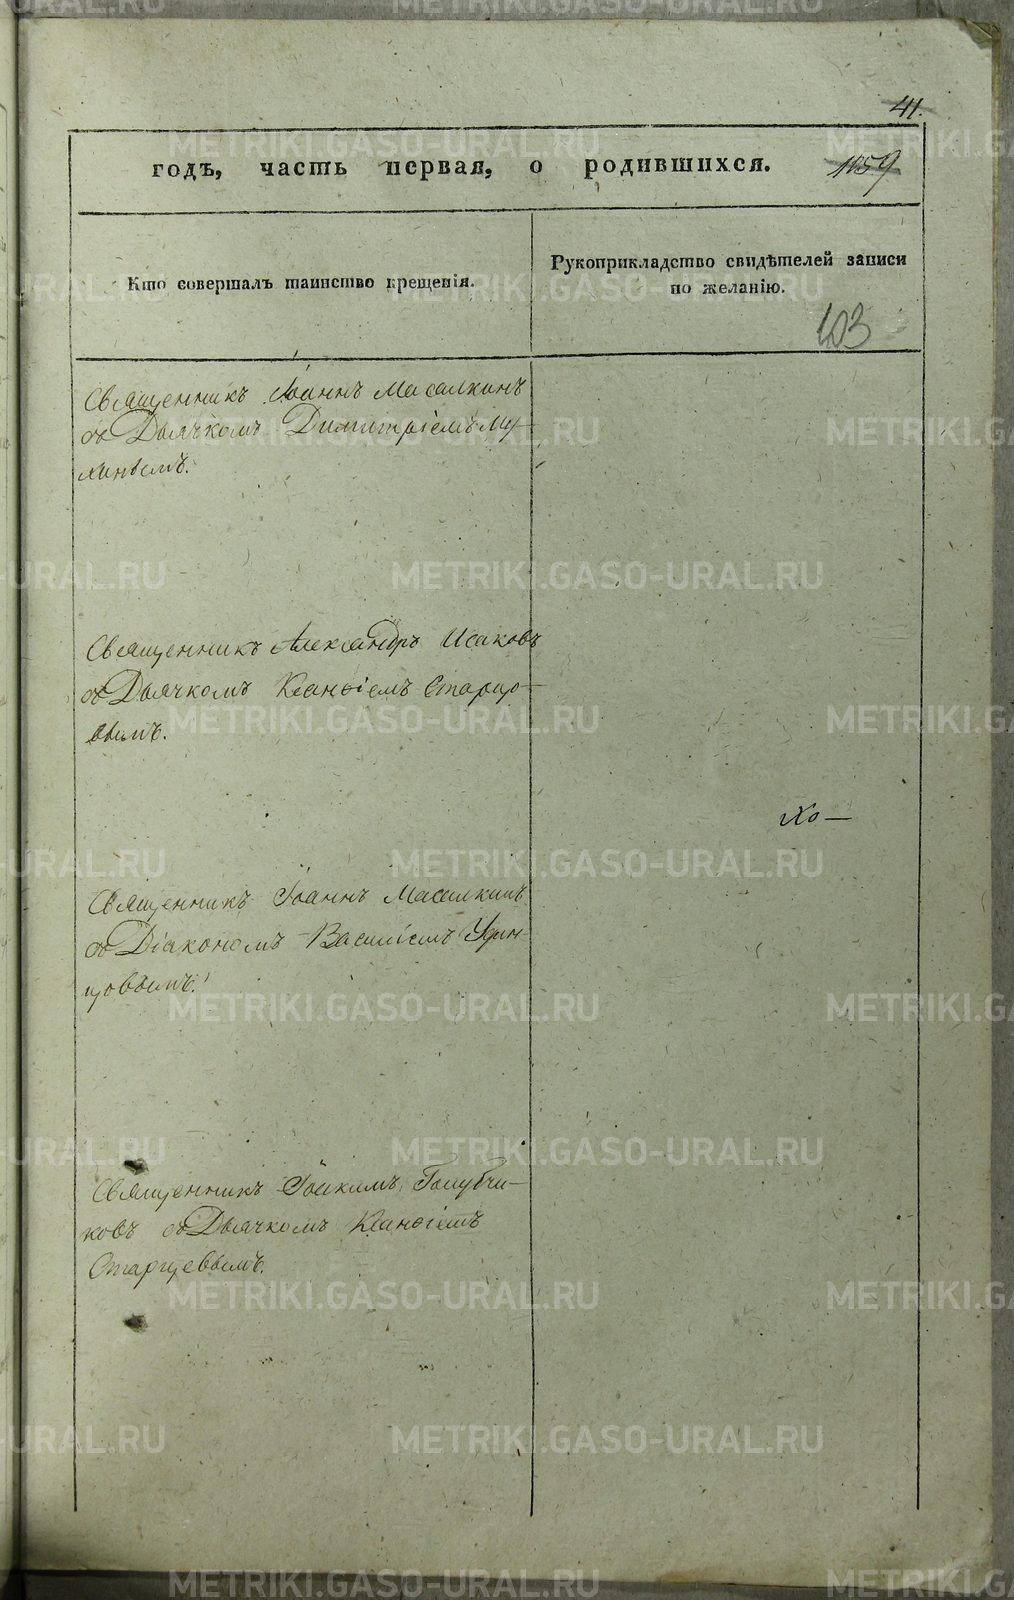 41.
годъ, часть первая, о родившихся. 1159
Кто совершалъ таинство крещенія.
Рукоприкладство свидѣтелей записи
по желанію.
103
Священникъ Іоаннъ Масалкинъ
съ Дьячкомъ Димитріемъ Му-
хинымъ.
Священникъ Александръ Исаковъ
съ Дьячкомъ Ксанфіемъ Старцо-
вымъ.
Хо—
Священникъ Іоаннъ Масалкинъ
съ Діакономъ Василіемъ
цовымъ.
Священникъ Іоакимъ Голубчи-
ковъ съ Дьячкомъ Ксанфіемъ
Старцевымъ.
METRIKI.GASO-URAL.RU